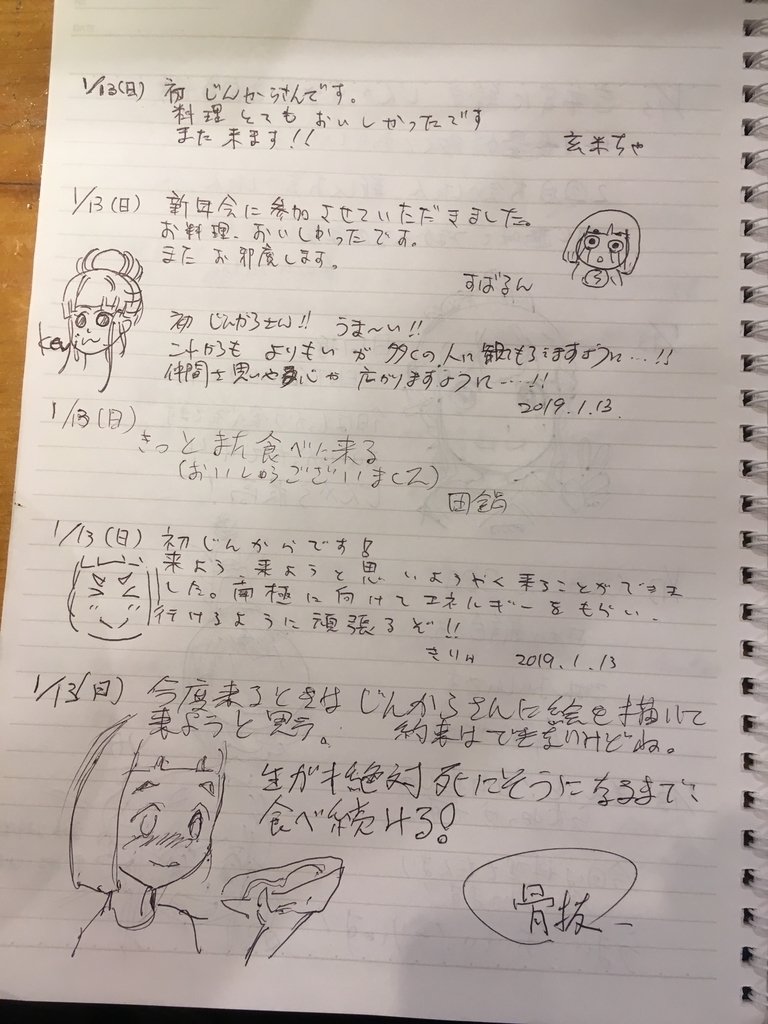 1/13(日) 初 じんからさんです。
料理 とても おいしかったです
また 来ます!!
玄米ちゃ
1/13(日) 新年会に参加させていただきました。
お料理、おいしかったです。
また お邪魔します。
すばるん
Key
初 じんからさん!! うま〜い!!
これからも よりもい が 多くの人に 観てもらえますように…!!
仲間を思いやる心が 広がりますように…!!
2019.1.13.
1/13(日)
きっと また 食べに来る
(おいしゅうございました)
田鍋
1/13(日) 初じんからです!
来よう 来ようと思いようやく来ることができま
した。南極に向けてエネルギーをもらい、
行けるように頑張るぞ!!
きりん 2019.1.13
1/13(日) 今度来るときは じんからさんに絵を描いて
来ようと思う。 約束はできないけどね。
生ガキ絶対 死にそうになるまで、
食べ続ける!
骨抜